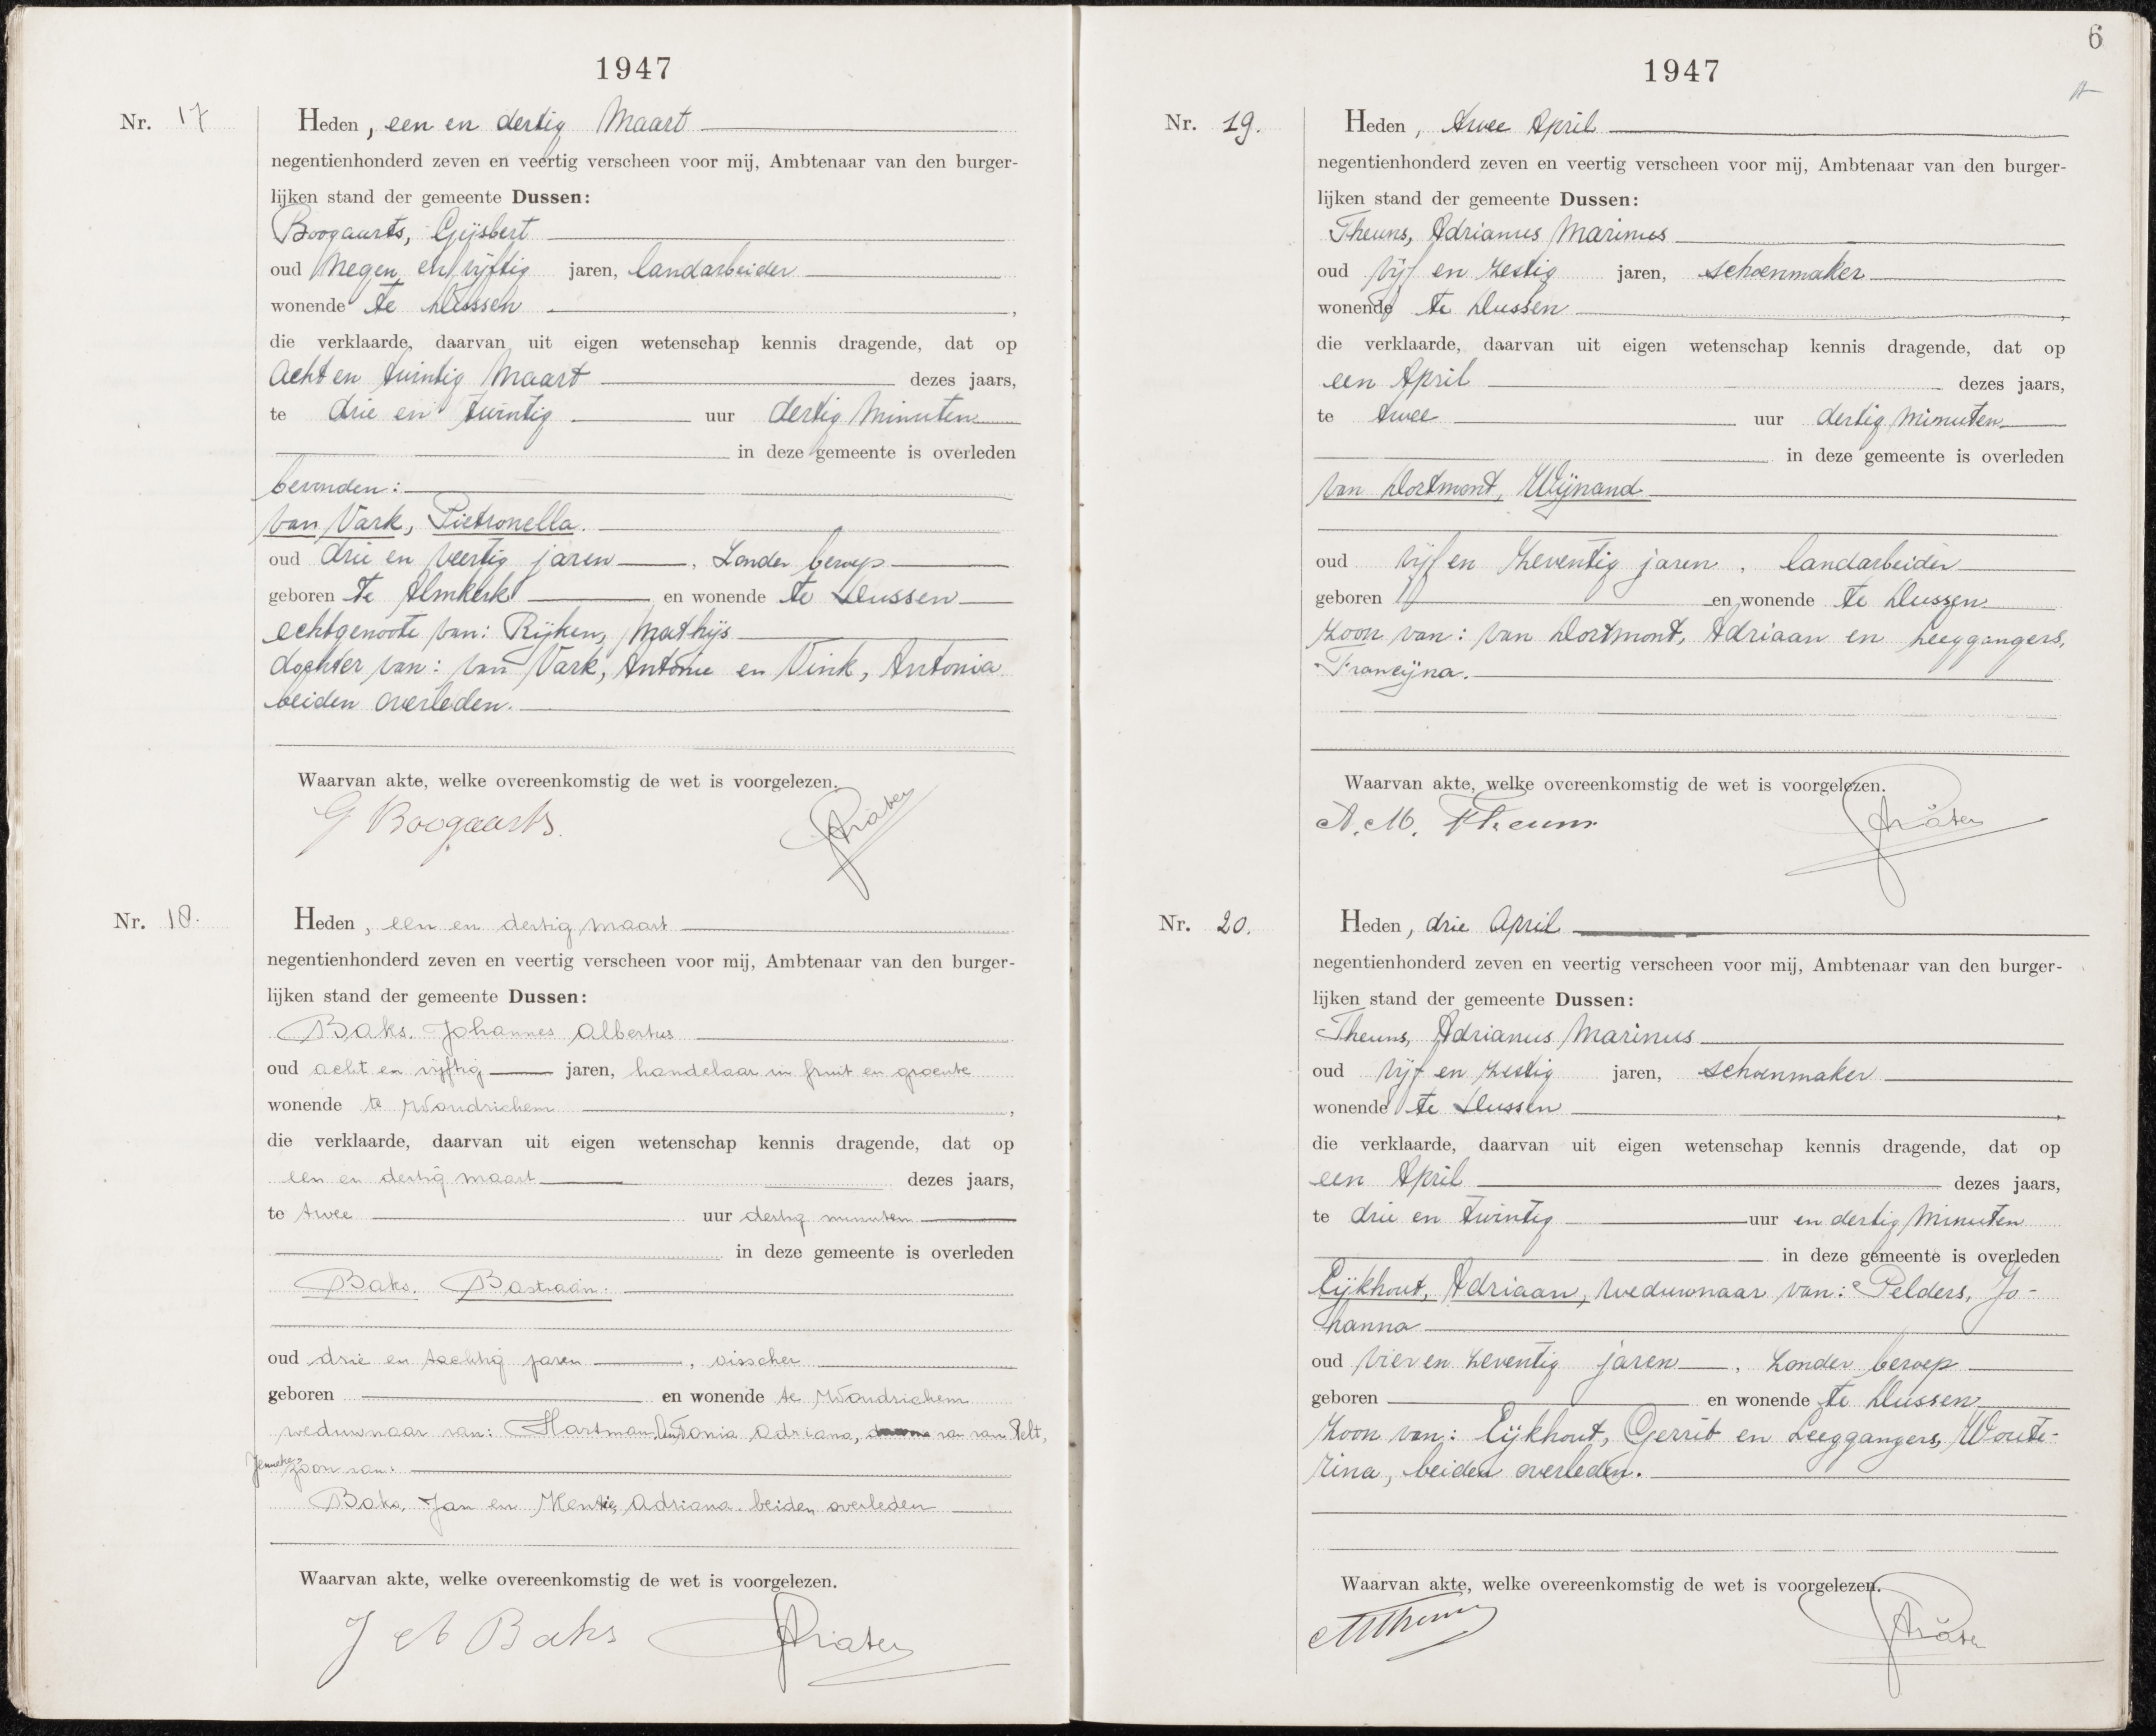 1947
Nr. 17
Heden, een en dertig Maart
negentienhonderd zeven en veertig verscheen voor mij, Ambtenaar van den burger-
lijken stand der gemeente Dussen:
Boogaerts, Gijsbert
oud Negen en vijftig jaren, landarbeider
wonende te Dussen,
die verklaarde, daarvan uit eigen wetenschap kennis dragende, dat op
Acht en twintig Maart dezes jaars,
te drie en twintig uur dertig Minuten
in deze gemeente is overleden
bevonden:
van Vark, Pietronella.
oud drie en veertig jaren, Zonder beroep
geboren te Almkerk en wonende te Dussen
echtgenoote van: Rijken, Mathijs
dochter van: van Vark, Antonie en Vink, Antonia
beiden overleden.
Waarvan akte, welke overeenkomstig de wet is voorgelezen.
G Boogaarts.
Nr. 18.
Heden, een en dertig maart
negentienhonderd zeven en veertig verscheen voor mij, Ambtenaar van den burger-
lijken stand der gemeente Dussen:
Baks. Johannes Albertus
oud acht en vijftig jaren, handelaar in fruit en groente
wonende te Woudrichem,
die verklaarde, daarvan uit eigen wetenschap kennis dragende, dat op
een en dertig maart dezes jaars,
te twee uur dertig minuten
in deze gemeente is overleden
Baks. Bastiaan.
oud drie en tachtig jaren, visscher
geboren en wonende te Woudrichem
weduwnaar van: Hartman, Antonia Adriana, van van Pelt,
Jenneke, zoon van:
Baks, Jan en Adriana. beiden overleden
Waarvan akte, welke overeenkomstig de wet is voorgelezen.
J A Baks
6
1947
Nr. 19.
Heden, twee April
negentienhonderd zeven en veertig verscheen voor mij, Ambtenaar van den burger-
lijken stand der gemeente Dussen:
Theuns, Adrianus Marinus
oud vijf en zestig jaren, schoenmaker
wonende te Dussen,
die verklaarde, daarvan uit eigen wetenschap kennis dragende, dat op
een April dezes jaars,
te twee uur dertig minuten
in deze gemeente is overleden
van Dortmont, Wijnand
oud vijf en zeventig jaren, landarbeider
geboren en wonende te Dussen
zoon van: van Dortmont, Adriaan en Leeggangers,
Francijna.
Waarvan akte, welke overeenkomstig de wet is voorgelezen.
A. M. Theuns
Nr. 20.
Heden, drie April
negentienhonderd zeven en veertig verscheen voor mij, Ambtenaar van den burger-
lijken stand der gemeente Dussen:
Theuns, Adrianus Marinus
oud vijf en zestig jaren, schoenmaker
wonende te Dussen,
die verklaarde, daarvan uit eigen wetenschap kennis dragende, dat op
een April dezes jaars,
te drie en twintig uur en dertig Minuten
in deze gemeente is overleden
Eijkhout, Adriaan, weduwnaar van: Pelders, Jo-
hanna
oud vier en zeventig jaren, zonder beroep
geboren en wonende te Dussen
zoon van: Eijkhout, Gerrit en Leeggangers, Woute-
rina, beiden overleden.
Waarvan akte, welke overeenkomstig de wet is voorgelezen.
AMTheuns